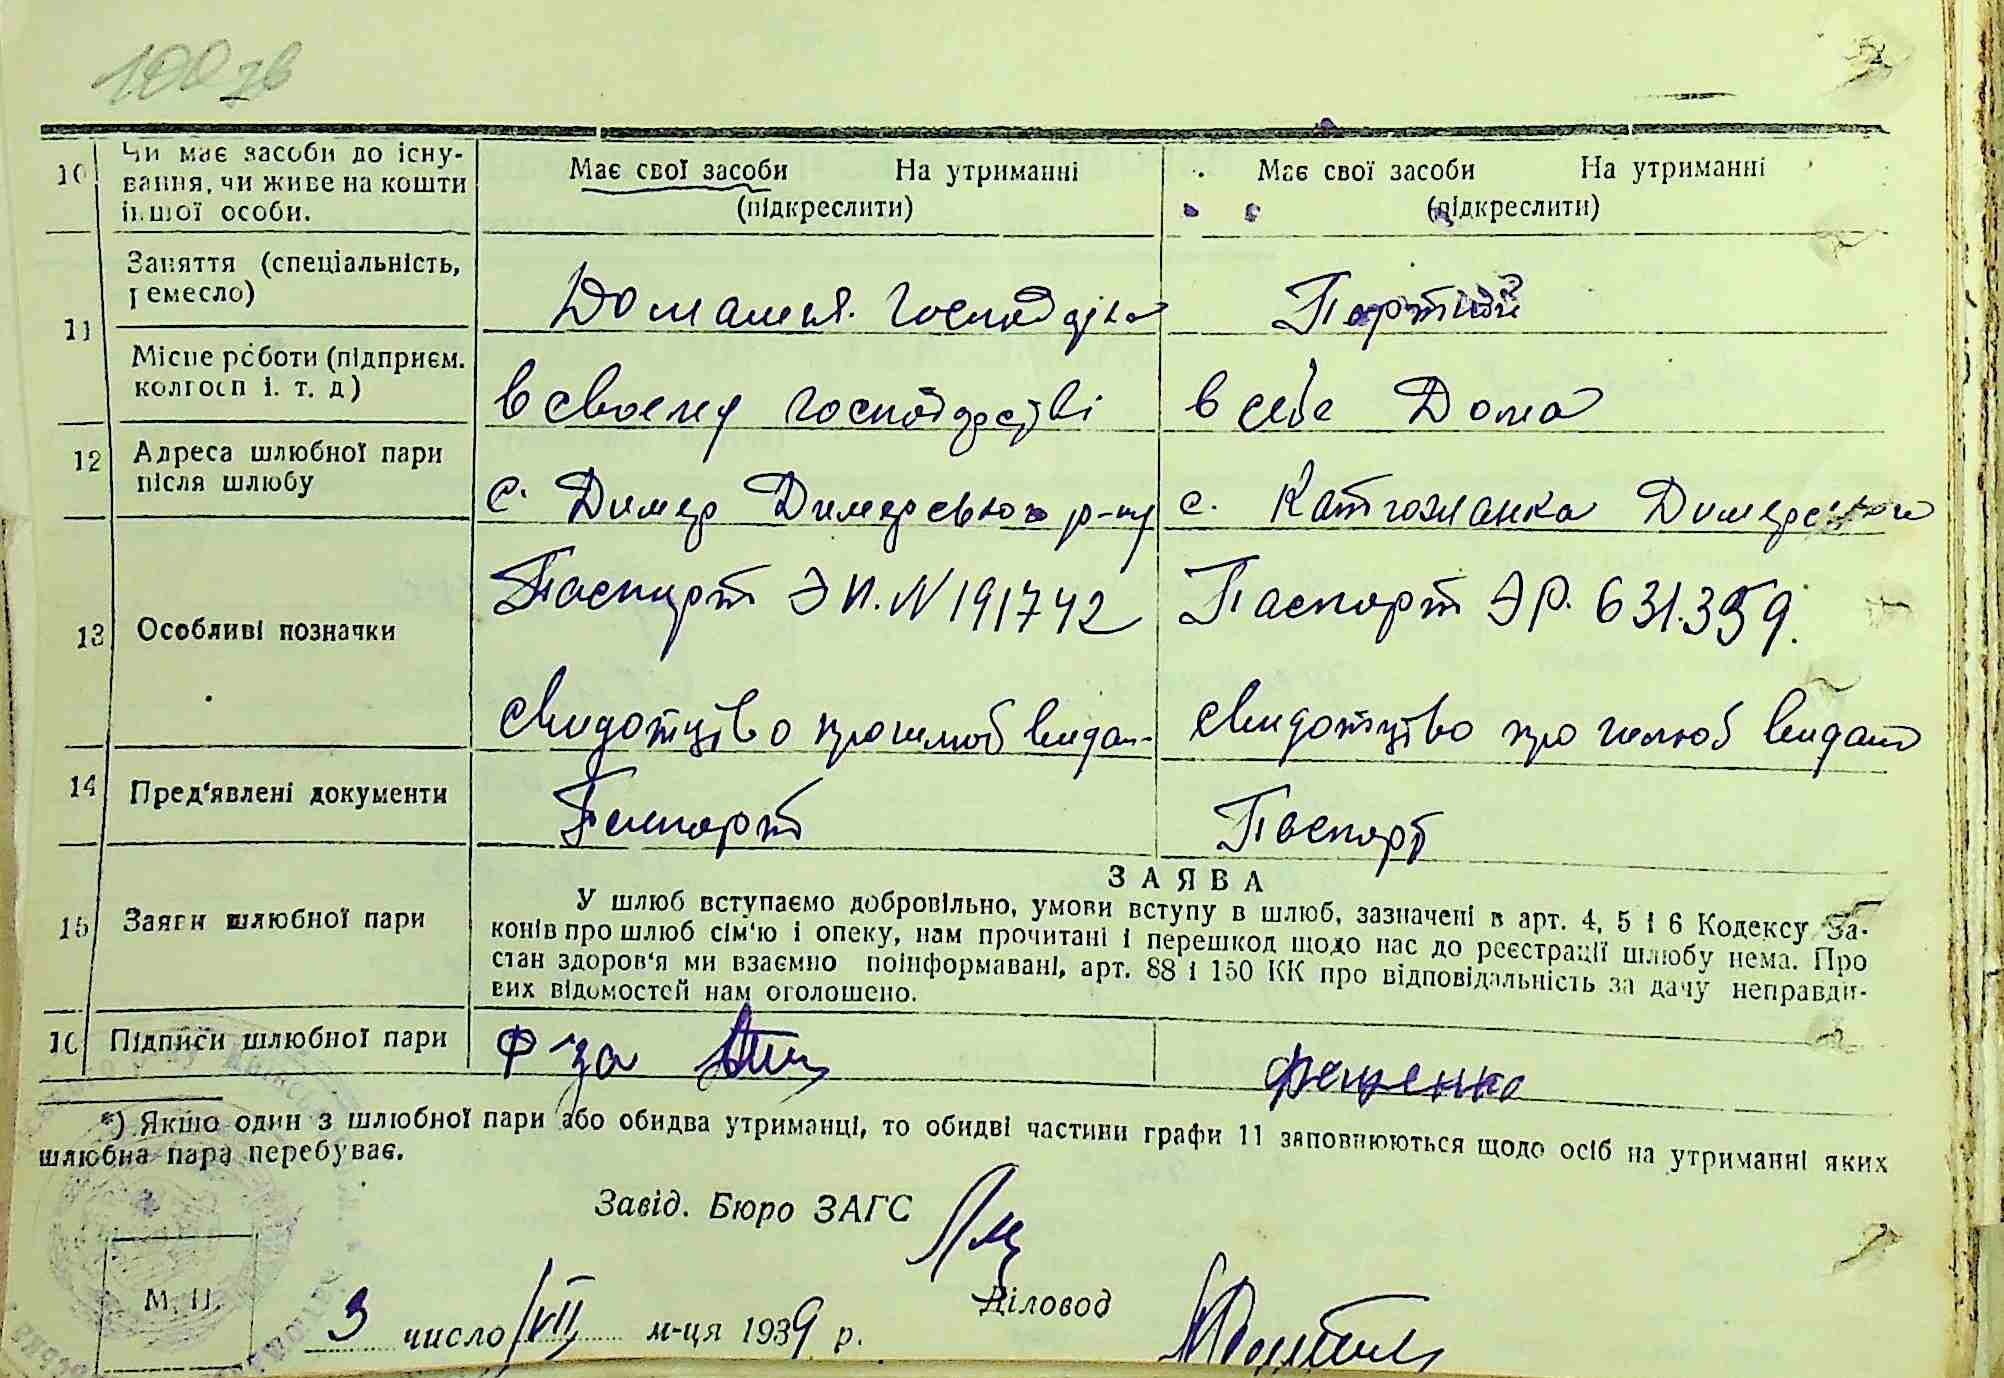 100 зв
10 Чи має засоби до існування, чи живе на кошти іншої особи.
Має свої засоби На утриманні
(підкреслити)
Має свої засоби На утриманні
(підкреслити)
11 Заняття (спеціальність, ремесло)
Домашня господарка
Портній
Місце роботи (підприєм. колгосп і. т. д)
в своему господарстві
в себе Дома
12 Адреса шлюбної пари після шлюбу
с. Димер Димерського р-ну
с. Катюжанка Димерського
13 Особливі позначки
Паспорт ЭИ. N 191742
Паспорт ЭР. 631.359.
свидотцтво про шлюб видан
свидотцтво про шлюб видано
14 Пред'явлені документи
Паспорт
Паспорт
15 Заяви шлюбної пари
ЗАЯВА
У шлюб вступаємо добровільно, умови вступу в шлюб, зазначені в арт. 4, 5 і 6 Кодексу За-
конів про шлюб сім'ю і опеку, нам прочитані і перешкод щодо нас до реєстрації шлюбу нема. Про
стан здоров'я ми взаємно поінформавані, арт. 88 і 150 КК про відповідальність за дачу неправди-
вих відомостей нам оголошено.
16 Підписи шлюбної пари
Фещенко
*) Якшо один з шлюбної пари або обидва утриманці, то обидві частини графи 11 заповнюються щодо осіб на утриманні яких
шлюбна пара перебуває.
Завід. Бюро ЗАГС
Діловод
М. П.
3 число VII м-ця 1939 р.